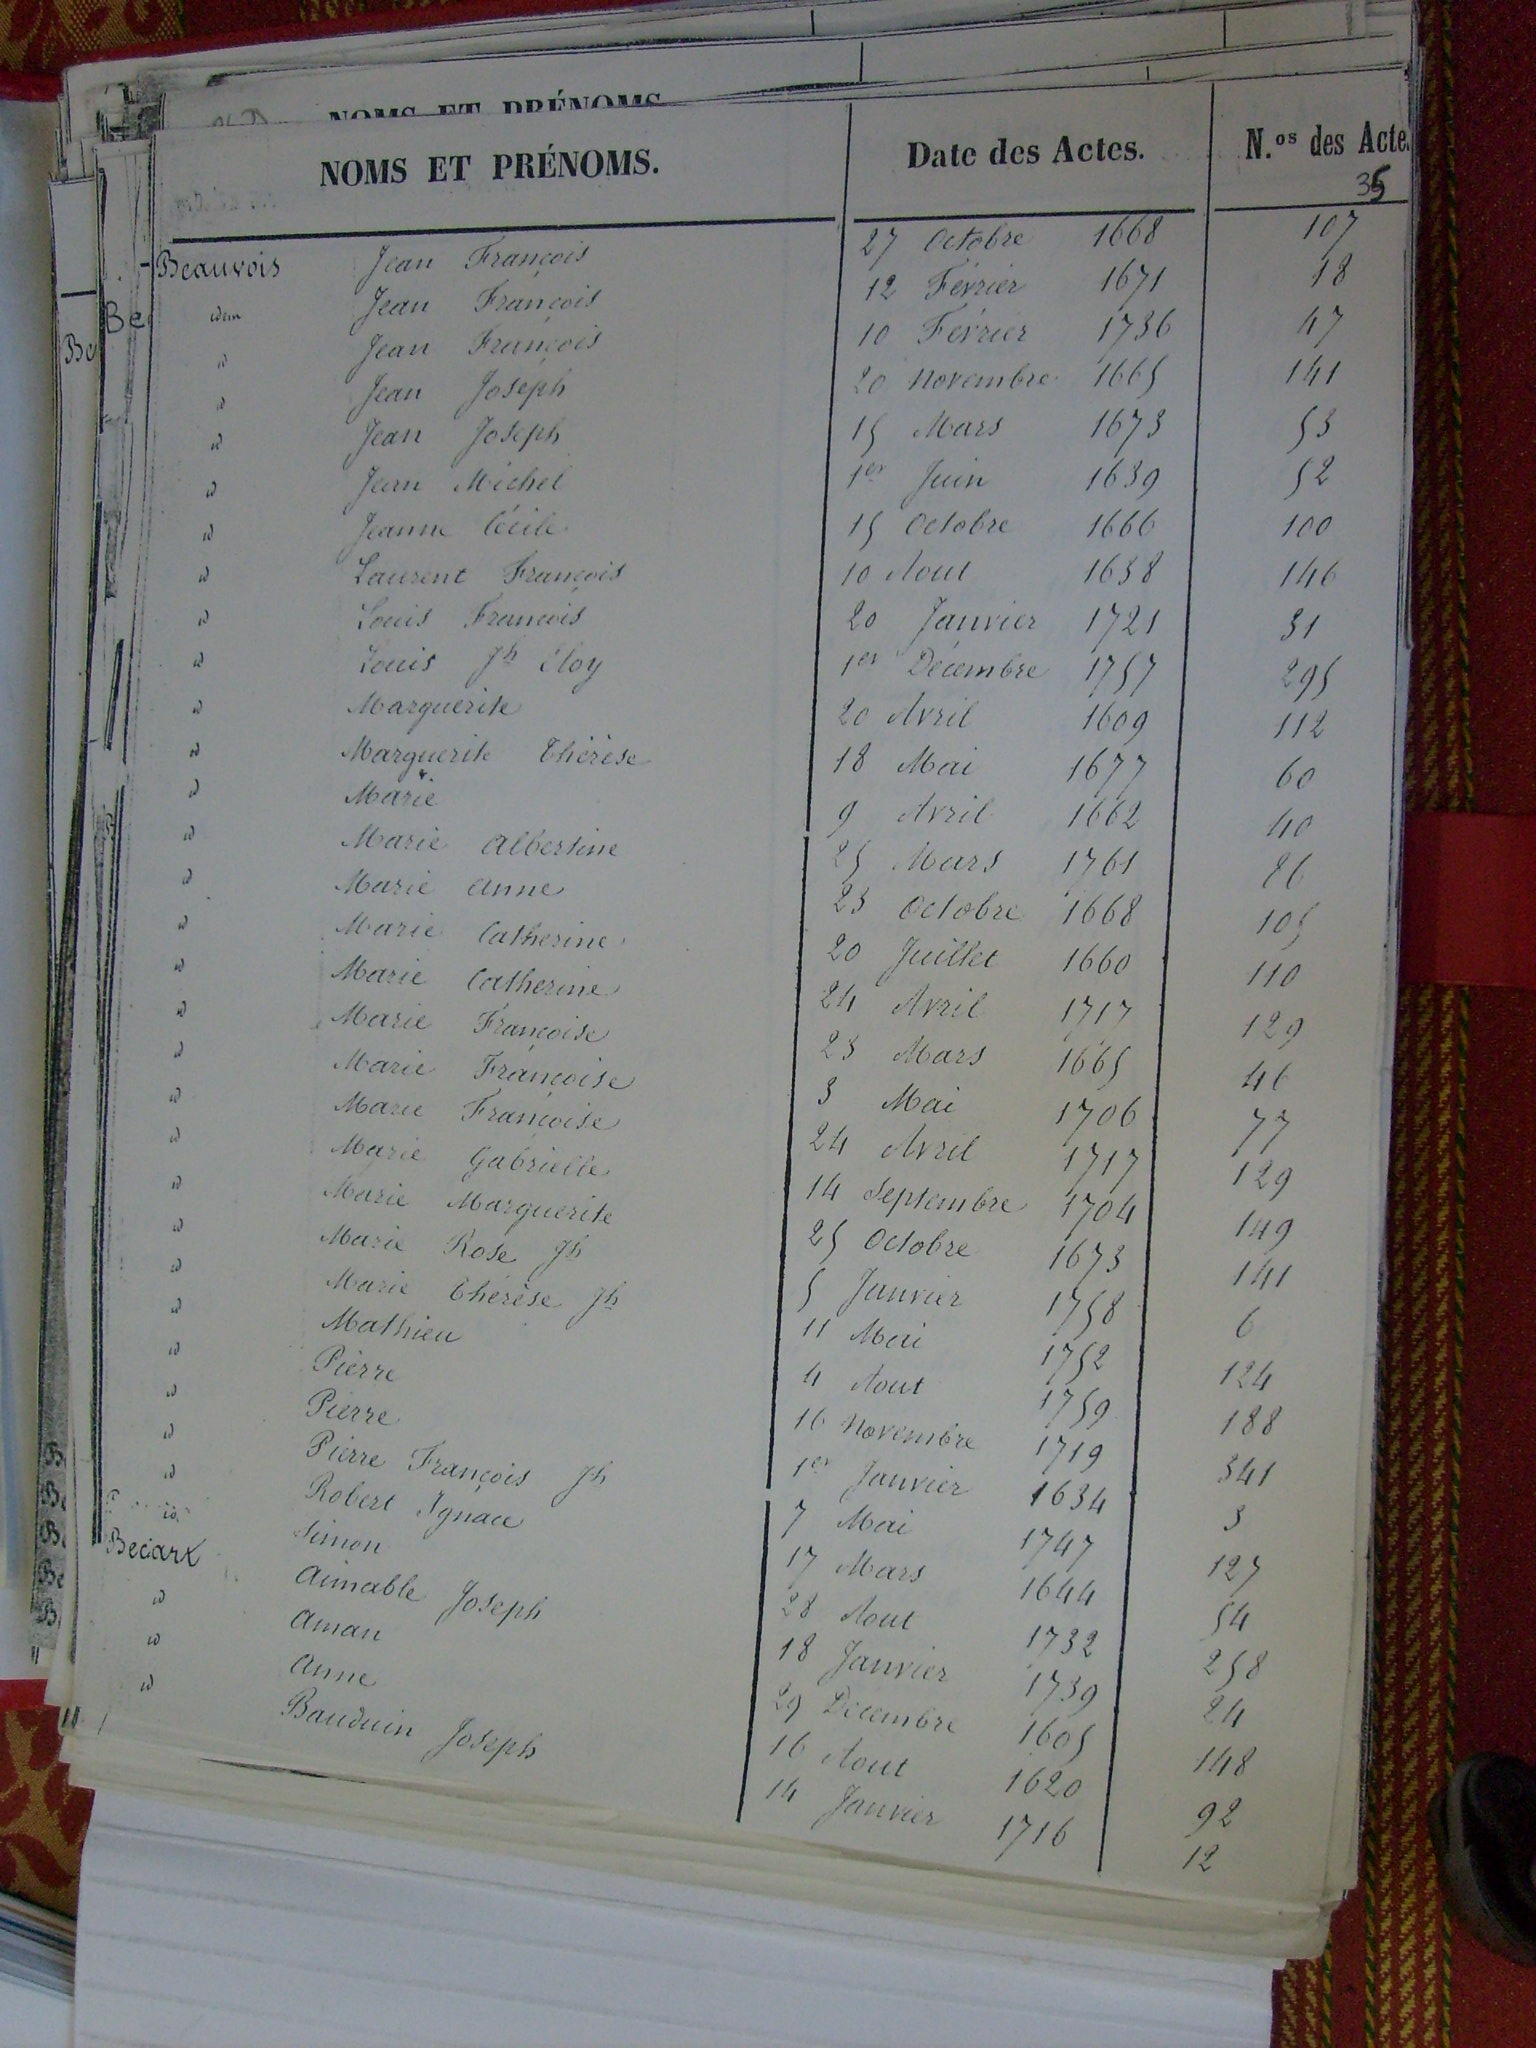 NOMS ET PRÉNOMS
NOMS ET PRÉNOMS. Date des Actes. N.os des Acte
35
Beauvois Jean François 27 Octobre 1668 107
idem Jean François 12 Février 1671 18
id Jean François 10 Février 1736 47
id Jean Joseph 20 Novembre 1665 141
id Jean Joseph 15 Mars 1673 53
id Jean Michel 1er Juin 1639 52
id Jeanne Cécile 15 Octobre 1666 100
id Laurent François 10 Aout 1638 146
id Louis François 20 Janvier 1721 31
id Louis Jh Eloy 1er Décembre 1757 295
id Marguerite 20 Avril 1609 112
id Marguerite Thérèse 18 Mai 1677 60
id Marie 9 Avril 1662 40
id Marie Albertine 25 Mars 1761 86
id Marie Anne 23 Octobre 1668 105
id Marie Catherine 20 Juillet 1660 110
id Marie Catherine 24 Avril 1717 129
id Marie Françoise 23 Mars 1665 46
id Marie Françoise 3 Mai 1706 77
id Marie Françoise 24 Avril 1717 129
id Marie Gabrielle 14 Septembre 1704 149
id Marie Marguerite 25 Octobre 1673 141
id Marie Rose Jh 5 Janvier 1758 6
id Marie Thérèse Jh 11 Mai 1752 124
id Mathieu 4 Aout 1759 188
id Pierre 16 Novembre 1719 341
id Pierre 1er Janvier 1634 3
id Pierre François Jh 7 Mai 1747 127
id Robert Ignace 17 Mars 1644 54
id Simon 28 Aout 1732 258
Becart Aimable Joseph 18 Janvier 1739 24
id Aman 29 Décembre 1605 148
id Anne 16 Aout 1620 92
id Bauduin Joseph 14 Janvier 1716 12